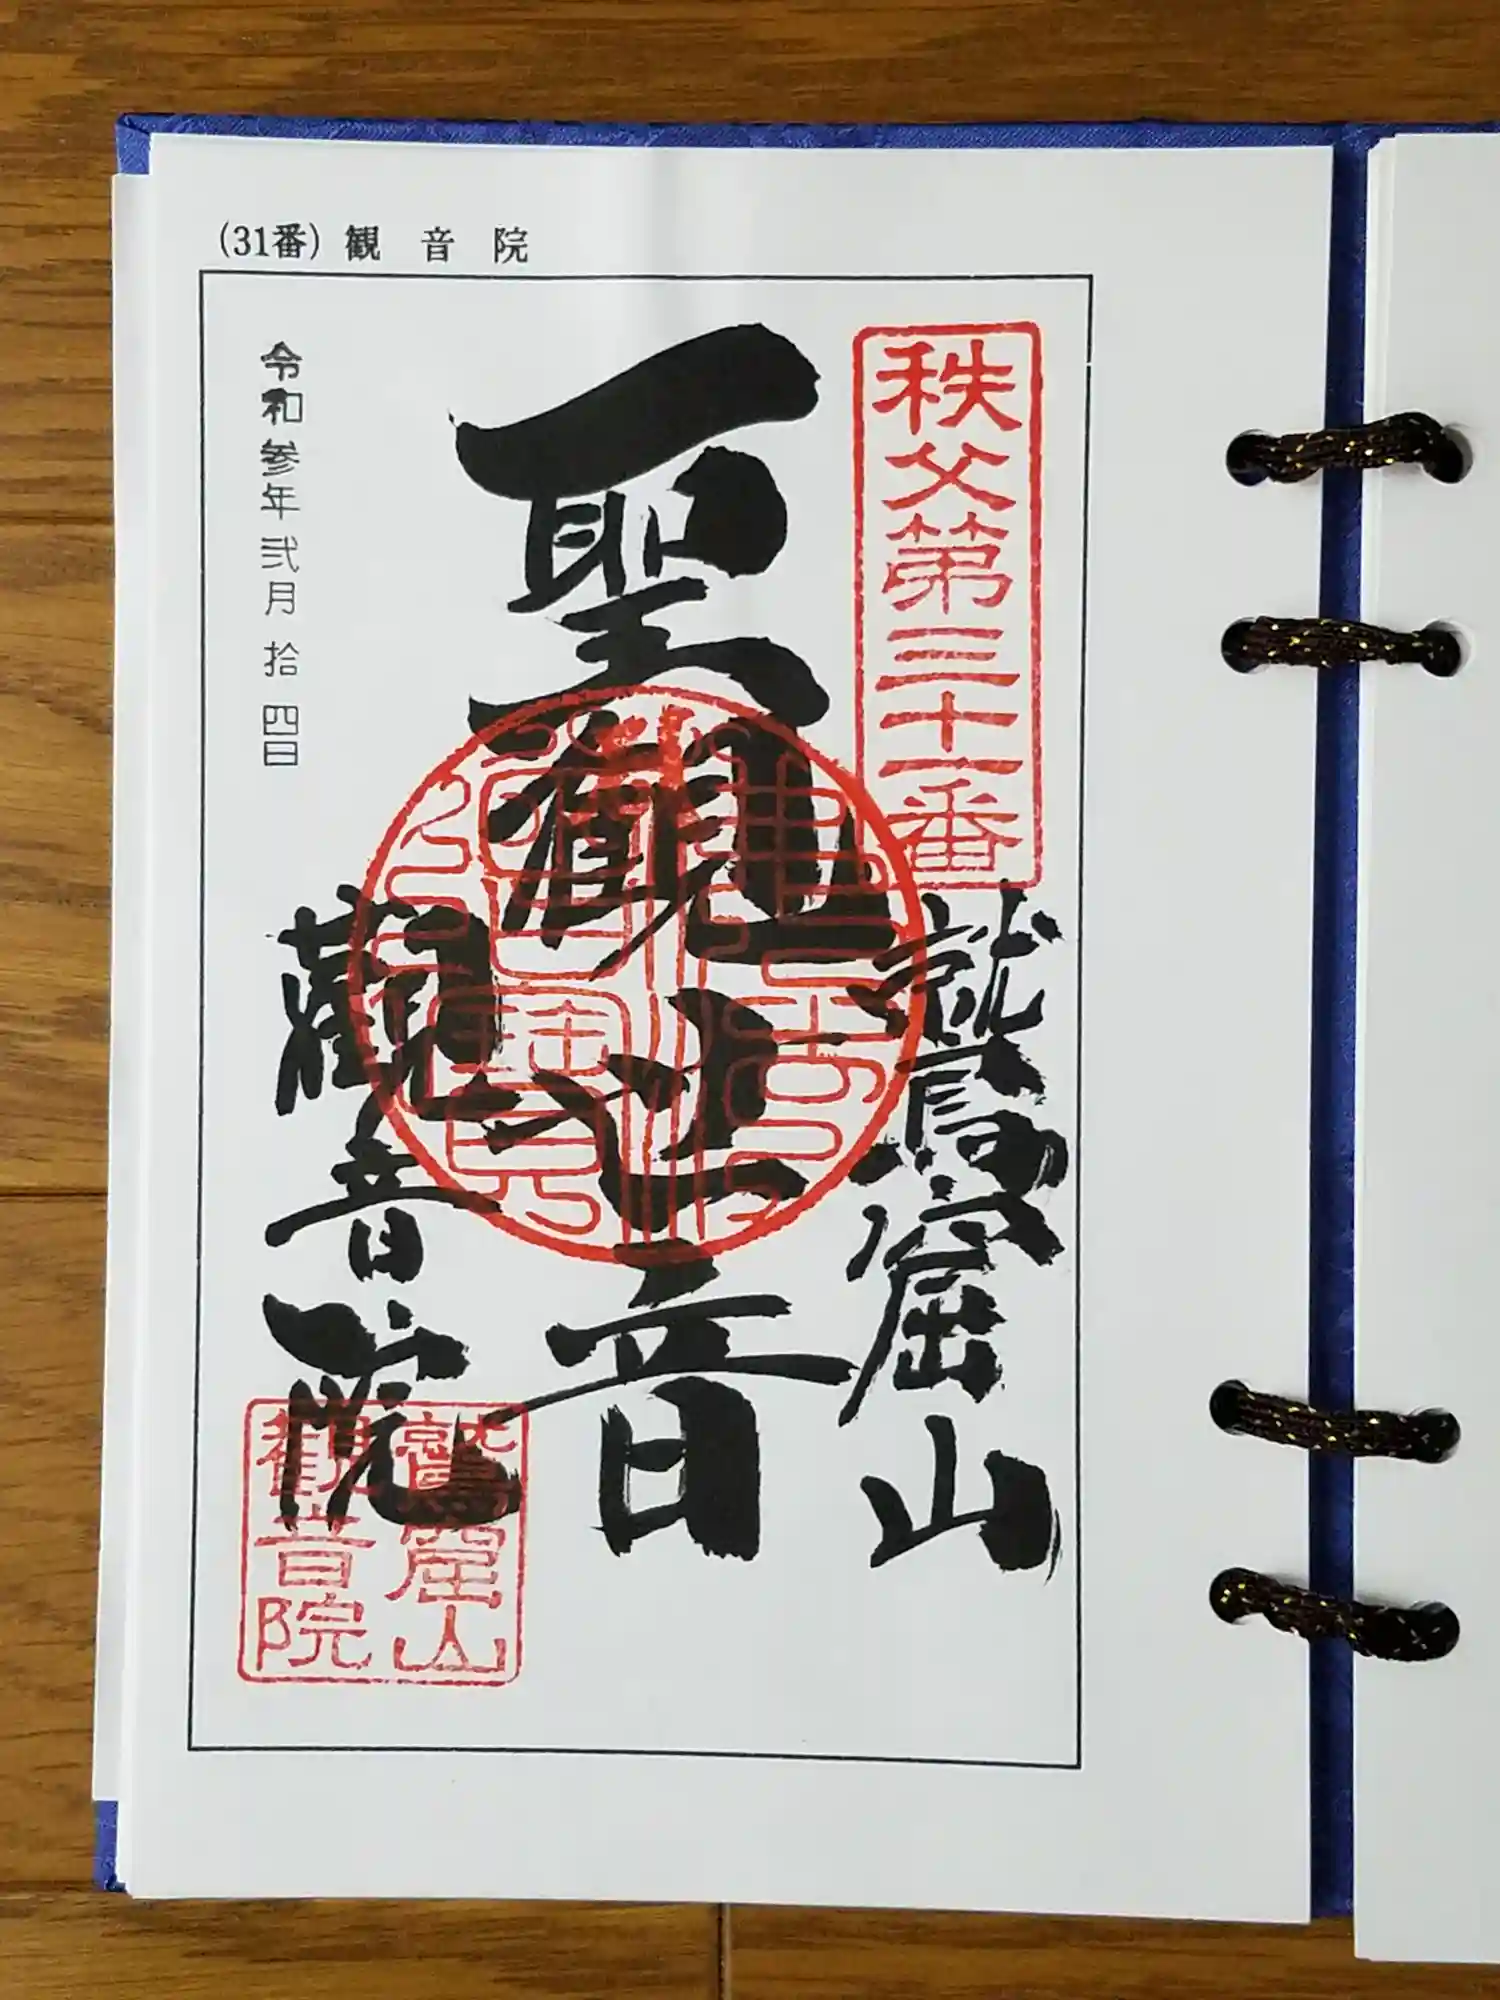 (31番) 観音院
秩父第三十一番
鷲窟山
聖観世音
觀音院
令和参年弐月拾四日
鷲窟山
観音院